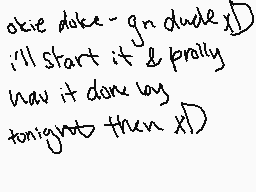 okie doke - gn dude xD
i'll start it & prolly
hav it done by
tonight then xD